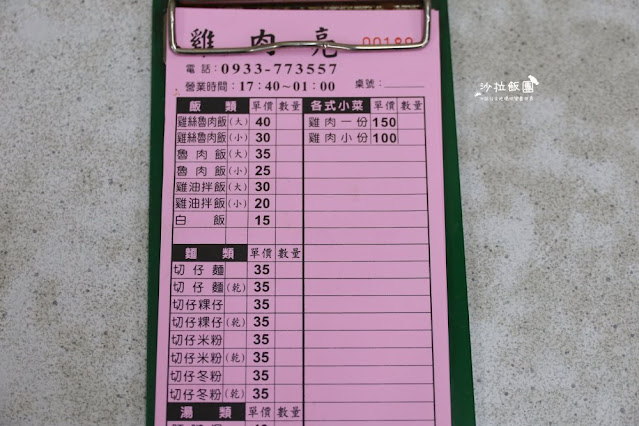 雞肉亮
00189
電話:0933-773557
營業時間:17:40~01:00 桌號:
飯類 單價 數量 各式小菜 單價 數量
雞絲魯肉飯(大) 40 雞肉一份 150
雞絲魯肉飯(小) 30 雞肉小份 100
魯肉飯(大) 35
魯肉飯(小) 25
雞油拌飯(大) 30
雞油拌飯(小) 20
白飯 15
麵類 單價 數量
切仔麵 35
切仔麵(乾) 35
切仔粿仔 35
切仔粿仔(乾) 35
切仔米粉 35
切仔米粉(乾) 35
切仔冬粉 35
切仔冬粉(乾) 35
湯類 單價 數量
沙拉飯團